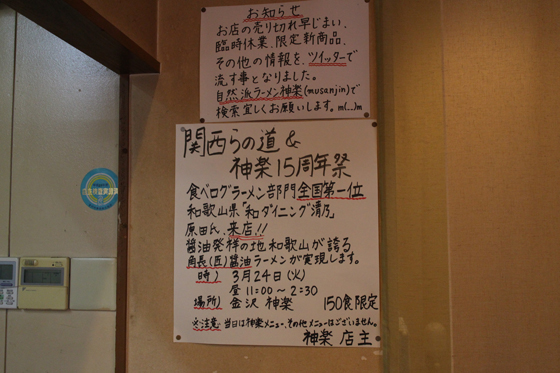 お知らせ
お店の売り切れ早じまい、
臨時休業、限定新商品、
その他の情報を、ツイッターで
流す事となりました。
自然派ラーメン神楽(musanjin)で
検索宜しくお願いします。m(...)m
関西らの道&
神楽15周年祭
食べログラーメン部門全国第一位
和歌山県「和ダイニング清乃」
原田氏、来店!!
醤油発祥の地和歌山が誇る
角長(匠)醤油ラーメンが実現します。
時) 3月24日(火)
昼11:00~2:30
場所) 金沢 神楽 150食限定
※注意 当日は神楽メニュー、その他メニューはございません。
神楽 店主